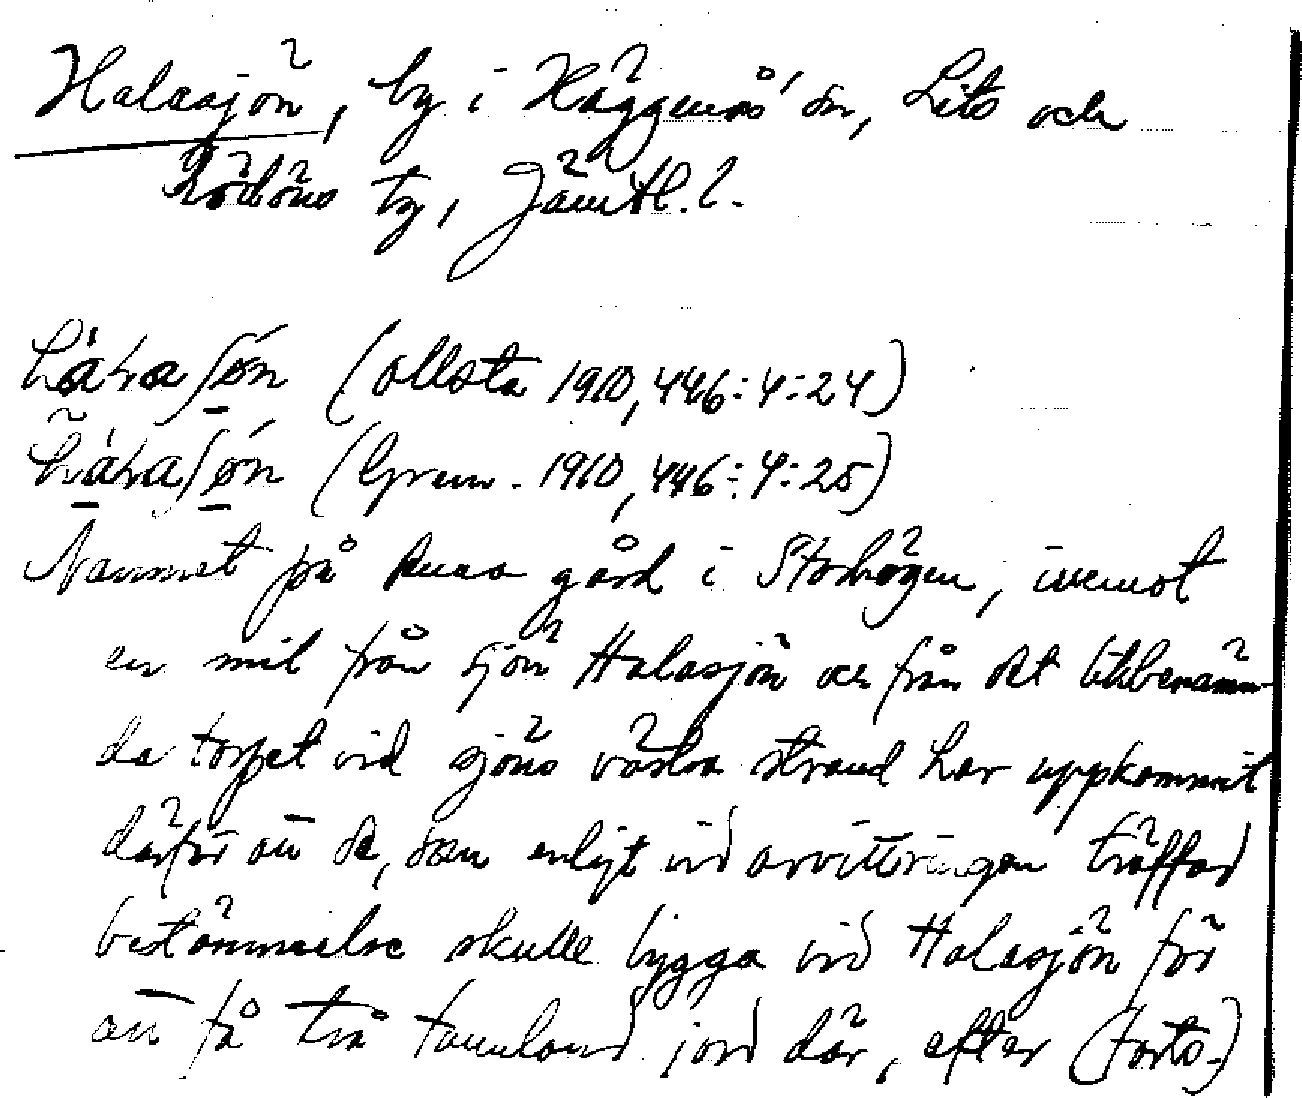 Halasjön, by i Häggenås sn, Lits och
Rödöns tg, Jämtl. l.
(Ollsta 1910, 446:4:24)
(Grenn. 1910, 446:4:25)
Namnet på deras gård i Storhögen, inemot
en mil från sjön Halasjön och från det likbenämn-
da torpet vid sjöns västra strand har uppkommit
därför att de, som enligt vid avvittringen träffad
bestämmelse skulle bygga vid Halasjön för
att få två tunnland jord där, efter (forts.)